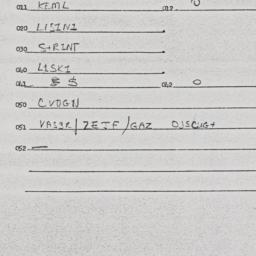 011 KEML 012 0
020 LISINI
030 S+RINT
040 LISKI
041 $ $ 042 0
050 CVDGN
051 VAS9R/ZETF/GAZ
052 —